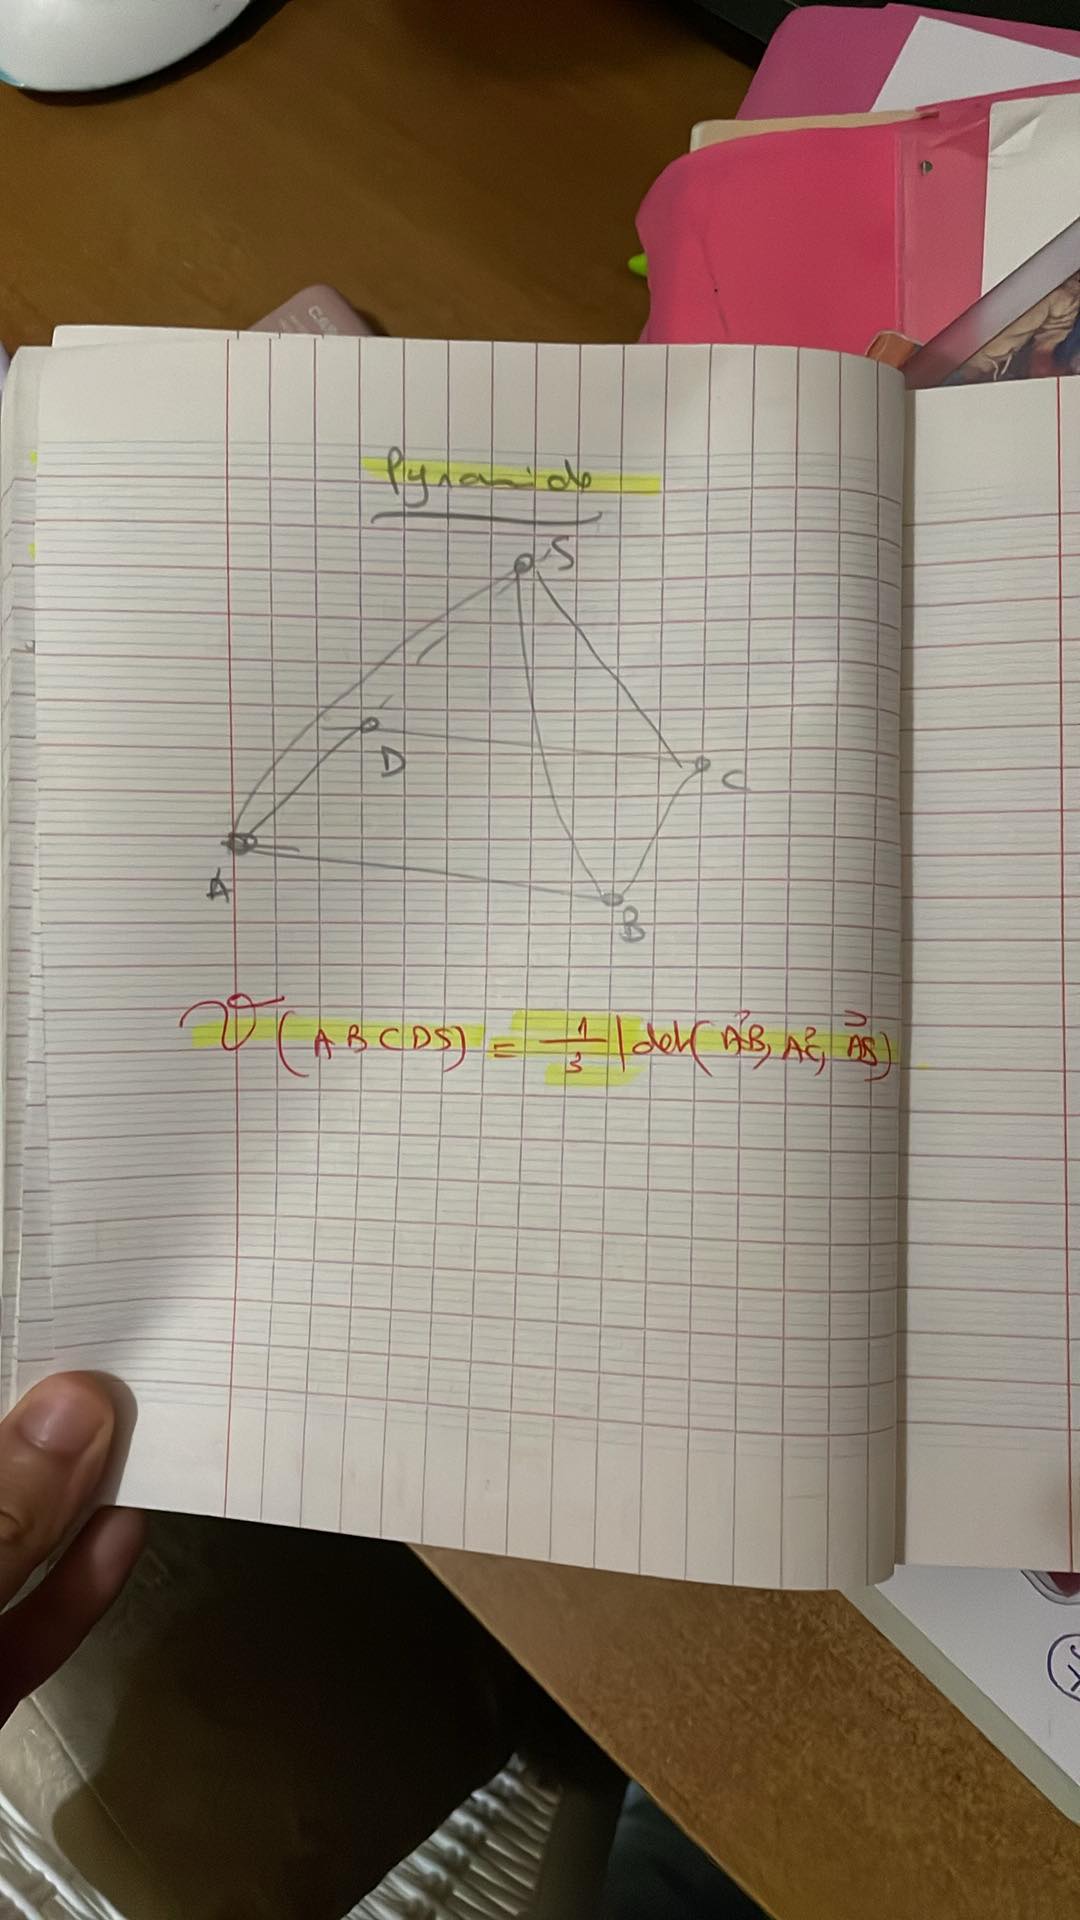 Pyramide
S
D
C
A
B
V (ABCDS) = 1/3 |det( A⃗B, A⃗C, A⃗S)